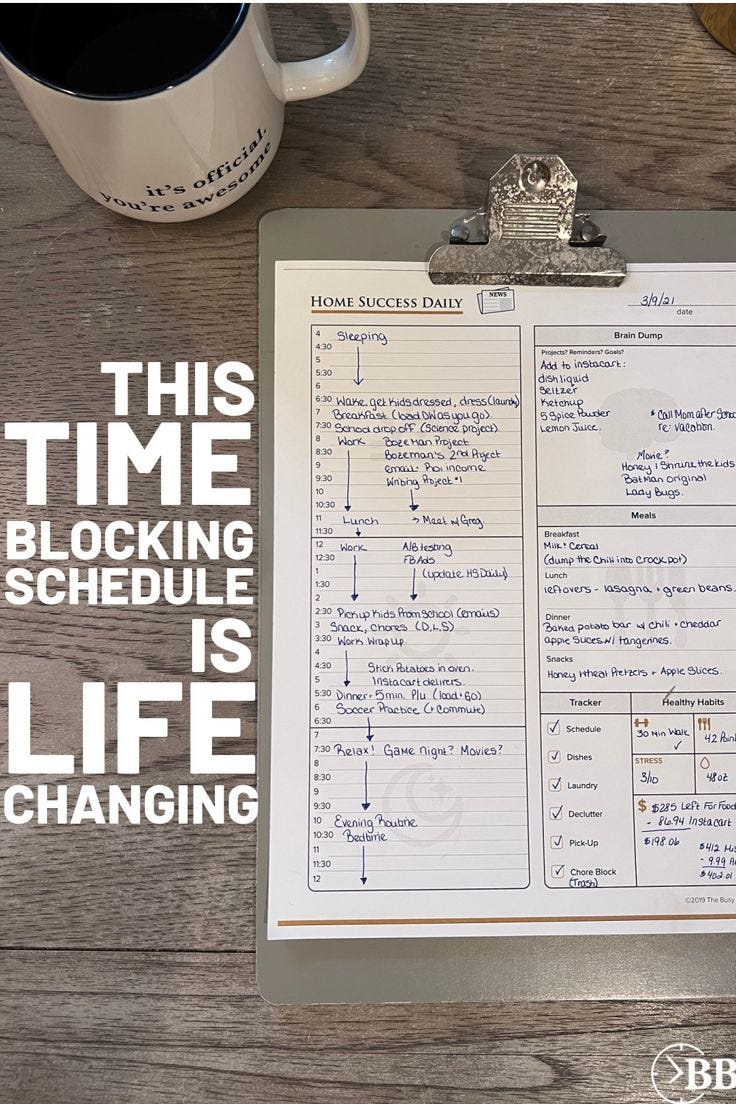 it's official.
you're awesome
THIS
TIME
BLOCKING
SCHEDULE
IS
LIFE
CHANGING
HOME SUCCESS DAILY
NEWS
3/9/21
date
4 Sleeping
4:30
5
5:30
6
6:30 Wake, get kids dressed, dress (laundry)
7 Breakfast (load DW as you go).
7:30 School drop off (Science project).
8 Work Bozeman Project
8:30 Bozeman's 2nd Project
9 email + Roi income
9:30 Writing Project #1
10
10:30
11 Lunch → Meet w/ Greg.
11:30
12 Work A/B testing
12:30 FB Ads
1 (update HS Daily)
1:30
2
2:30 Pickup kids from School (emails)
3 Snack, Chores (D,L,S)
3:30 Work Wrap up.
4
4:30 Stick Potatoes in oven.
5 Instacart delivers.
5:30 Dinner + 5 min. P/u (load + go)
6 Soccer Practice (+ commute)
6:30
7
7:30 Relax! Game night? Movies?
8
8:30
9
9:30
10 Evening Routine
10:30 Bedtime
11
11:30
12
Brain Dump
Projects? Reminders? Goals?
Add to instacart:
dish liquid
Seltzer
Ketchup
5 Spice Powder
Lemon Juice.
* Call Mom after School
re: vacation.
Movie?
Honey I Shrunk the kids
Batman original
Lady Bugs.
Meals
Breakfast
Milk + Cereal
(dump the Chili into Crockpot)
Lunch
leftovers - lasagna + green beans.
Dinner
Baked potato bar w/ chili + cheddar
apple slices w/ tangerines.
Snacks
Honey Wheat Pretzels + Apple Slices.
Tracker
Schedule
Dishes
Laundry
Declutter
Pick-Up
Chore Block
(Trash)
Healthy Habits
30 Min Walk
42
STRESS
3/10
48oz
$ $285 Left For Food
- 86.94 Instacart
$198.06
$412
- 9.99
$402.01
©2019 The Busy
BB